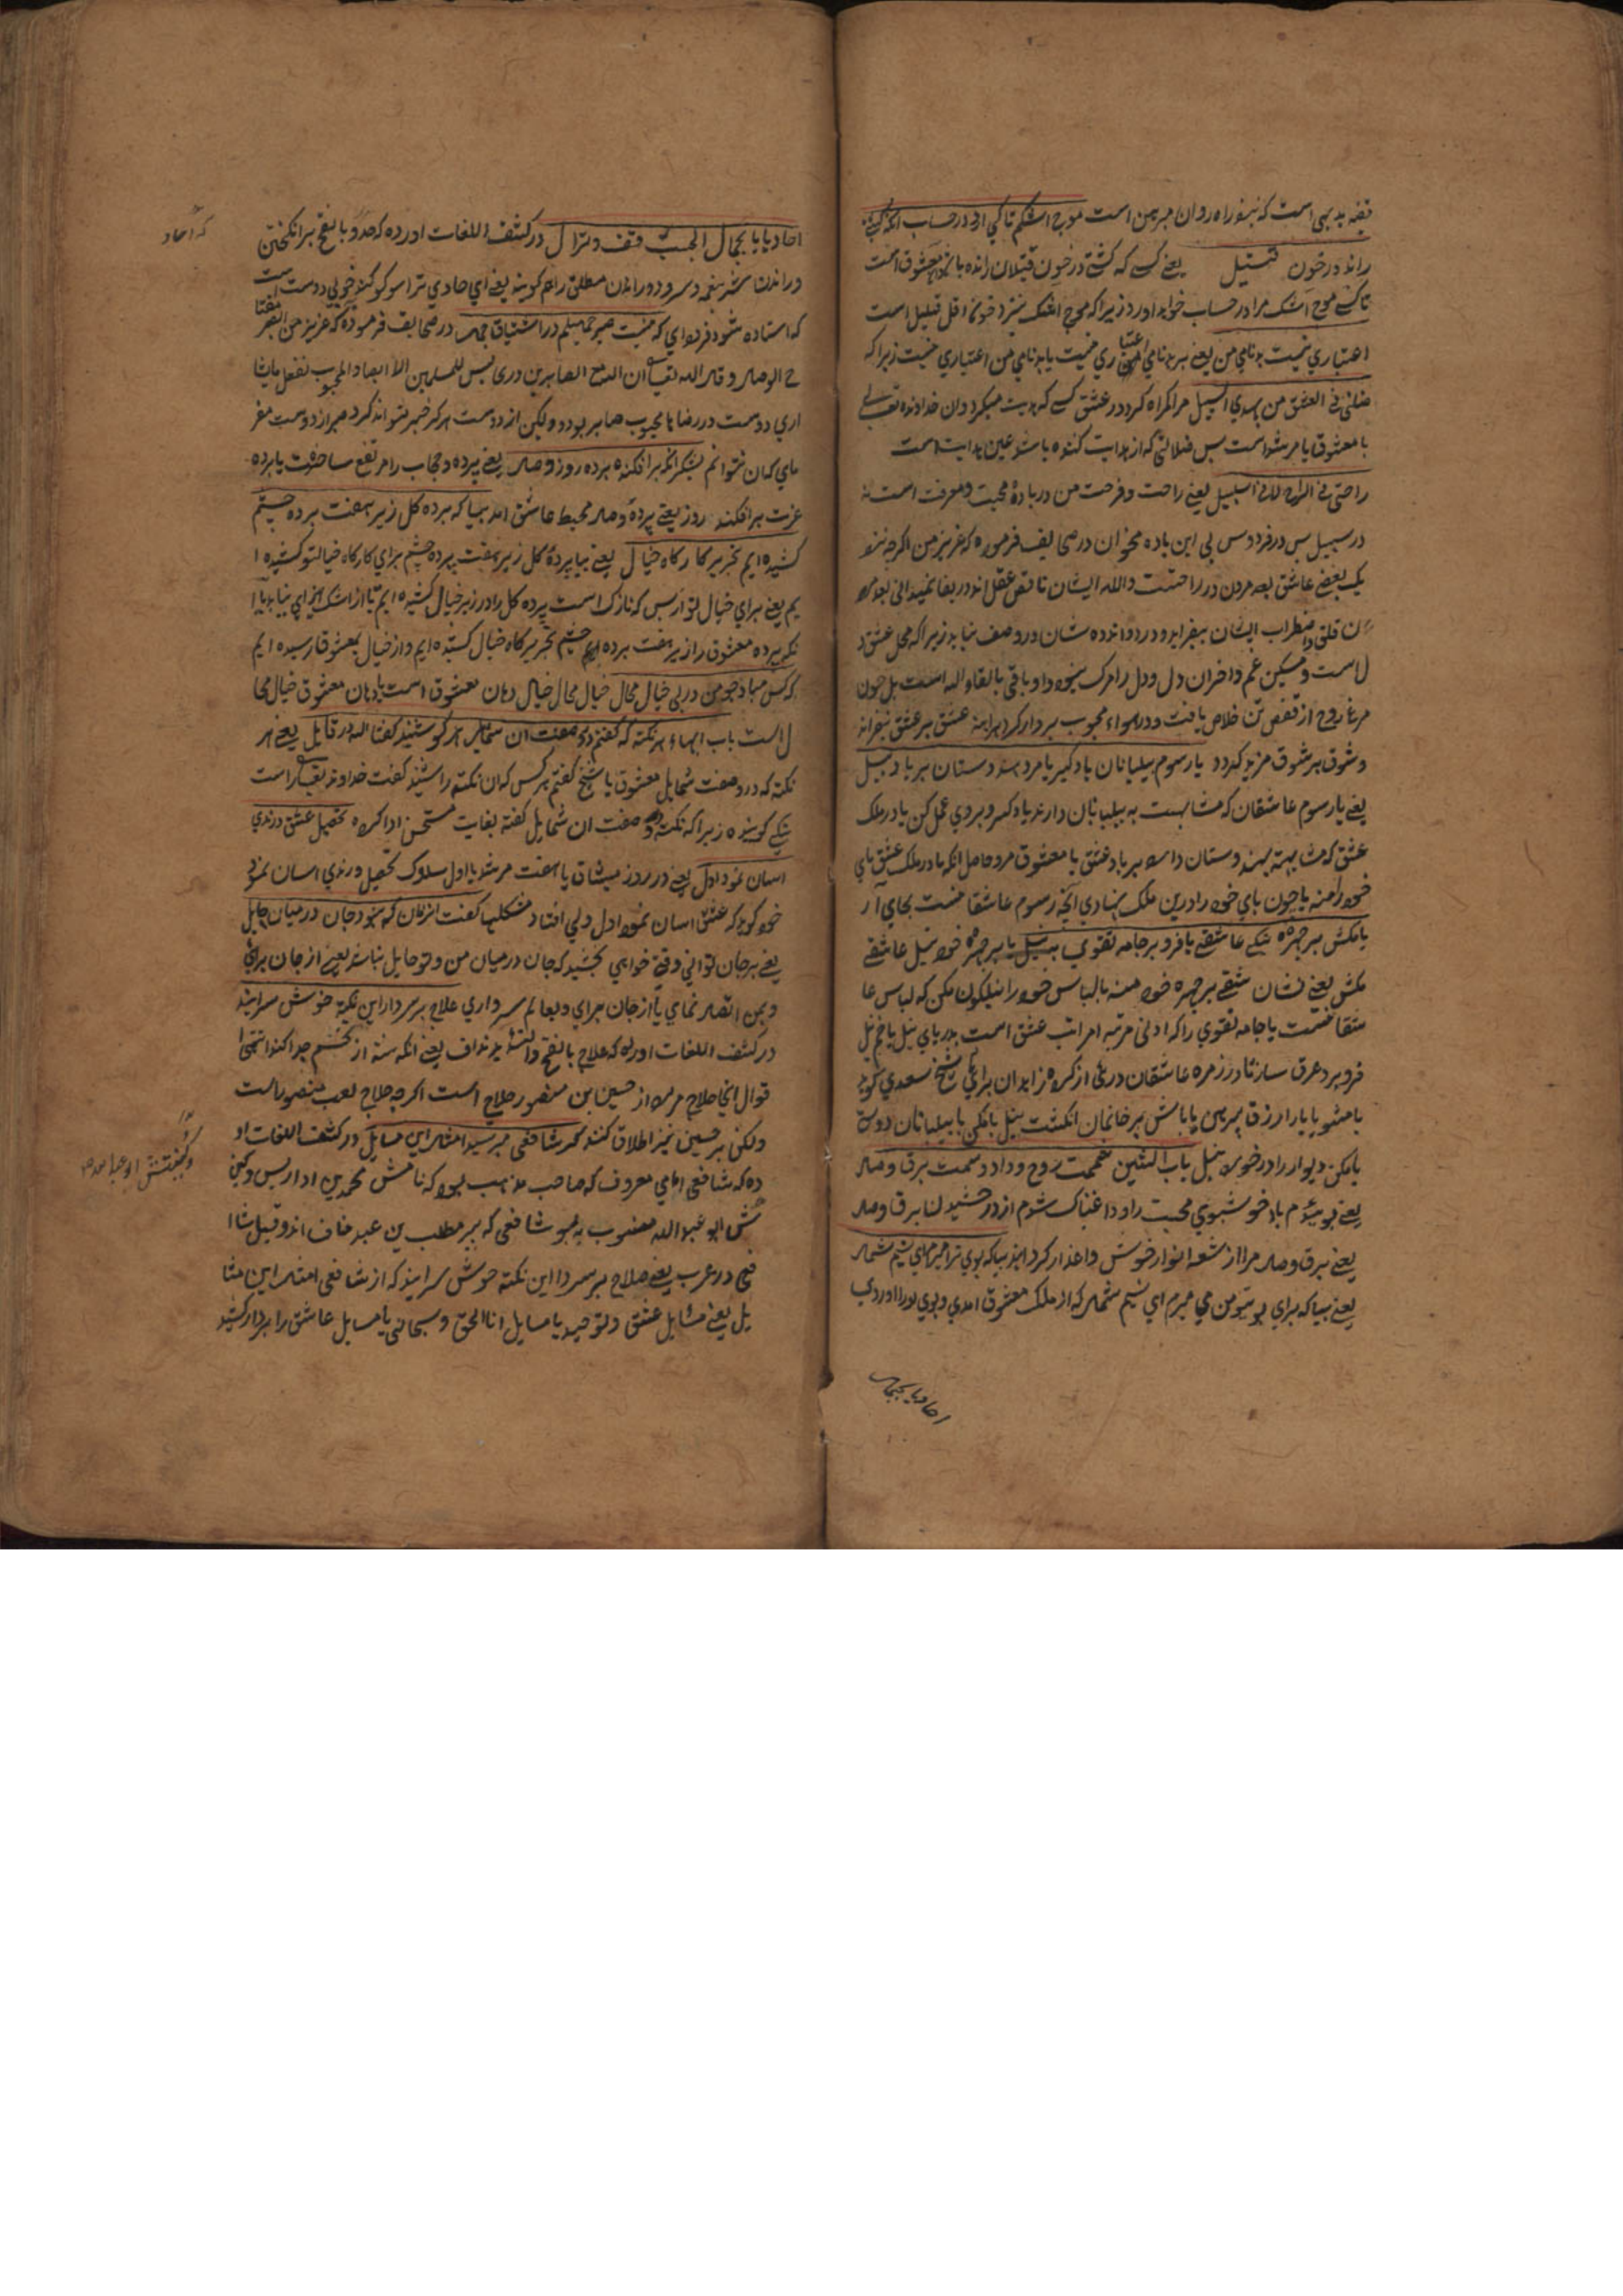 قفه بدیهی است که بنوز راه روان مبرهن است موج اشکم تا کی ارد در حساب انکه کشتی
راند در خون قتیل یعنی کسی که کشتی در خون قتیلان رانده باشد معشوق است
تا کی موج اشک مرا در حساب خواهد اورد زیرا که موج اشک نزد خونها اقل قلیل است
اعتباری نیست بدنامی من یعنی بر بدنامی من اعتباری نیست یا بدنامی من اعتباری نیست زیرا که
ضلنی فی العشق من یهدی السبیل مرا کمراه کرد در عشق کسی که هدیت میکرد و ان خداوند تعالی
یا معشوق یا مرشد است بس ضلالتی که از هدایت کننده باشد عین هدایت است
راحتی فی الراح لا فی السلسبیل یعنی راحت و فرحت من در باده محبت و معرفت است نه
در سبیل بس در فردوس بی این باده مخوان در صحایف فرموده که عزیز من اکرچه نزد
یک بعضی عاشق بعد مردن در راحتست والله ایشان ناقص عقل اند دریغا نمیدانی بعد مر
دن قلق و اضطراب ایشان بیفزاید و درد و اندوه شان در وصف نیاید زیرا که محل عشق د
ل است و مسکن غم و احزان دل و دل را مرک نبود او باقی بالقاء الله است بل چون
مرغ روح از قفص تن خلاص یافت و در هواء محبوب برواز کرد هر اینه عشق بر عشق بیفزاید
و شوق بر شوق مزید کردد یا رسوم بیلبانان یاد کیر یا مرو هندوستان بر یاد بیل
یعنی یا رسوم عاشقان که مشابهست به بیلبانان دارند یاد کیر و بر وی عمل کن یا در ملک
عشق که مشابهه بهندوستان دارد بر یاد عشق یا معشوق مرو حاصل انکه یا در ملک عشق بای
خود را منه یا چون بای خود را درین ملک نهادی انچه رسوم عاشقا نست بجای آر
یا مکش بر چهره نیلی عاشقی یا فرو بر جامه تقوی به نیل یا بر چهره خود نیل عاشقی
مکش یعنی نشان عشقی بر چهره خود منه یا لباس خود را نیلکون مکن که لباس عا
شقا نست یا جامه تقوی را که ادنی مرتبه از مراتب عشق است بدریای نیل یا خم نیل
فرو بر و غرق ساز تا در زمره عاشقان درائی از کروه زاهدان برائی شیخ سعدی کوید
یا مشو با یار ازرق پیرهن یا بکش بر خانمان انکشت نیل یا مکن با بیلبانان دوستی
یا مکن دیوار را در خورد بیل باب الشین شممت روح وداد و شمت برق وصال
یعنی بوییدم باد خوشبوی محبت را و دا غناک شوم از درخشیدن برق وصال
یعنی برق وصال مرا از شعه انوار خوش داغدار کرد ایند بیا که بوی ترا میرم ای نسیم شمال
یعنی بیا که برای بو بتو من می میرم ای نسیم شمال که از ملک معشوق امدی و بوی او را اوردی
احادیا بجمال
احادیا بجمال الحبیب قف وانزل در کشف اللغات اورده که حدو بالفتح برانکیختن
و راندن شتر بنغمه و سرود و راندن مطلق را هم کویند یعنی ای حادی ترا سوکند خوبی دوست است
که استاده شو و فرود ای که نیست صبر جمیلم در اشتیاق جمال در صحایف فرموده که عزیز من الصبر مفتا
ح الوصال و قال الله تعالی ان الله مع الصابرین دری بس للمسلمین الا ابصار المحبوب لفعل مایشا
اری دوست در رضا یا محبوب صابر بود و لیکن از دوست هرکز خبر نتواند کرد صبر از دوست مفر
مای کان نتوانم بشکر انکه برافکند برده روز وصال یعنی پرده و حجاب را مرتفع ساخت یا برده
عزت برافکند روز یعنی پرده وصال محیط عاشق امد بیا که برده کل ریز هفت برده چشم
کشیده ایم بتحریر کارکاه خیال یعنی بیا پرده کل ریز هفت پرده چشم برای کارکاه خیال تو کشیده ا
یم یعنی برای خیال تو از بس که نازک است پرده کل را در زیر خیال کشیده ایم تا از اشک ایزای نیابد یا ا
نکه پرده معشوق را زیر هفت برده چشم بتحریر کاه خیال کشیده ایم و از خیال بمعشوق رسیده ایم
که کس مباد چو من در پی خیال محال خیال محال خیال دهان معشوق است یا دهان معشوق خیال محا
ل است باب الهاء هر نکته که کفتم در وصف ان شمایل هر کو شنید کفتا لله در قایل یعنی هر
نکته که در وصف شمایل معشوق یا شیخ کفتم هر کس که ان نکته را شنید کفت خداوند تعالی راست
نیکی کوینده زیرا که نکته در وصف ان شمایل کفته بغایت مستحسن ادا کرده تحصیل عشق و رندی
اسان نمود اول یعنی در روز میثاق یا هفت مرشد یا اول سلوک تحصیل و رندی اسان نمود
خود کوید که عشق اسان نمود اول ولی افتاد مشکلها کفت انزمان که نبود جان در میان حایل
یعنی بر جان توانی وقتی خواهی کشید که جان در میان من و تو حایل نباشد یعنی از جان برائی
و بمن اتصال نمای یا از جان برای و بعالم سر داری حلاج بر سر دار این نکته خوش سراید
در کشف اللغات اورده که حلاج بالفتح والتشدید نداف یعنی انکه پنبه از تخم جدا کند انتهی ا
قوال انحا حلاج مراد از حسین ابن منصور حلاج است اکرچه حلاج لعب منصور است
ولکن بر حسین نیز اطلاق کنند کر شافعی مپرسید امثال این مسایل در کشف اللغات او
رده که شافعی امامی معروف که صاحب مذهب بود که نامش محمد بن ادریس و کنی
تش ابو عبد الله منسوب به بنو شافعی که ببر مطلب بن عبد مناف اند و قبیل شا
فعی در عرب یعنی حلاج بر سر دار این نکته خوش سرایند که از شافعی امثال این مسا
یل یعنی مسایل عشق و توحید یا مسایل انا الحق و سبحانی یا مسایل عاشق را بر دار کشید
که احاد
و کنیتش ابو عبد الله